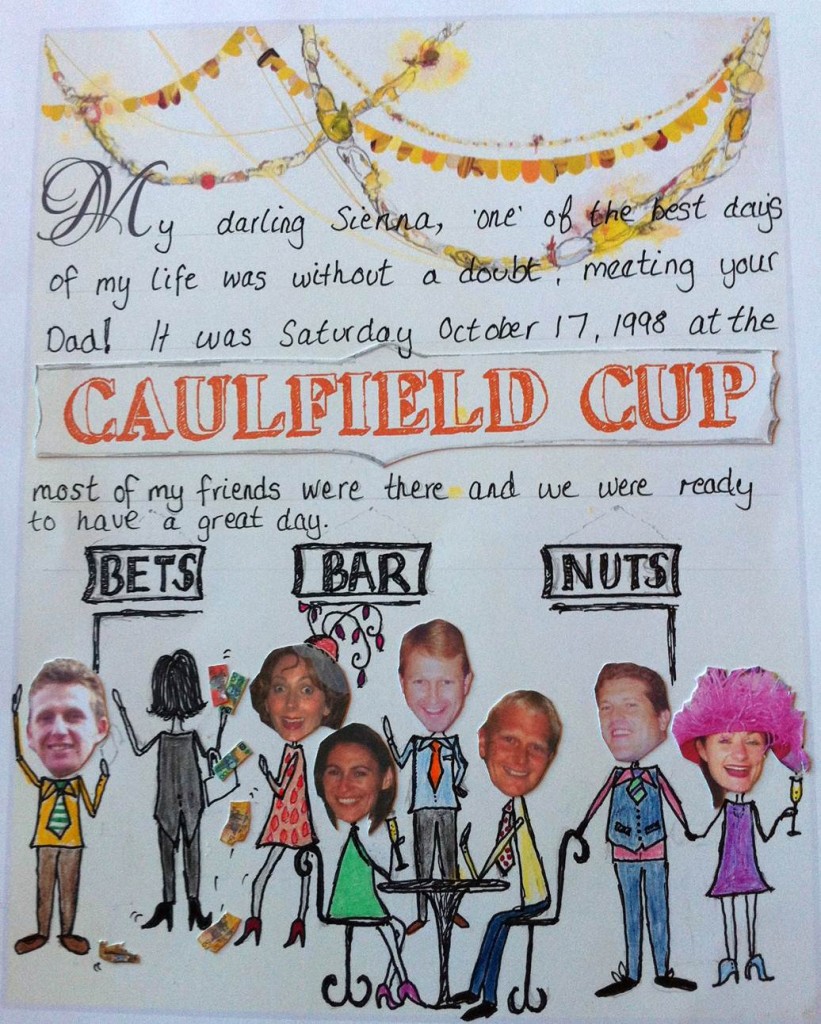 My darling Sienna, 'one' of the best days
of my life was without a doubt, meeting your
Dad! It was Saturday October 17, 1998 at the
CAULFIELD CUP
most of my friends were there and we were ready
to have a great day.
BETS BAR NUTS